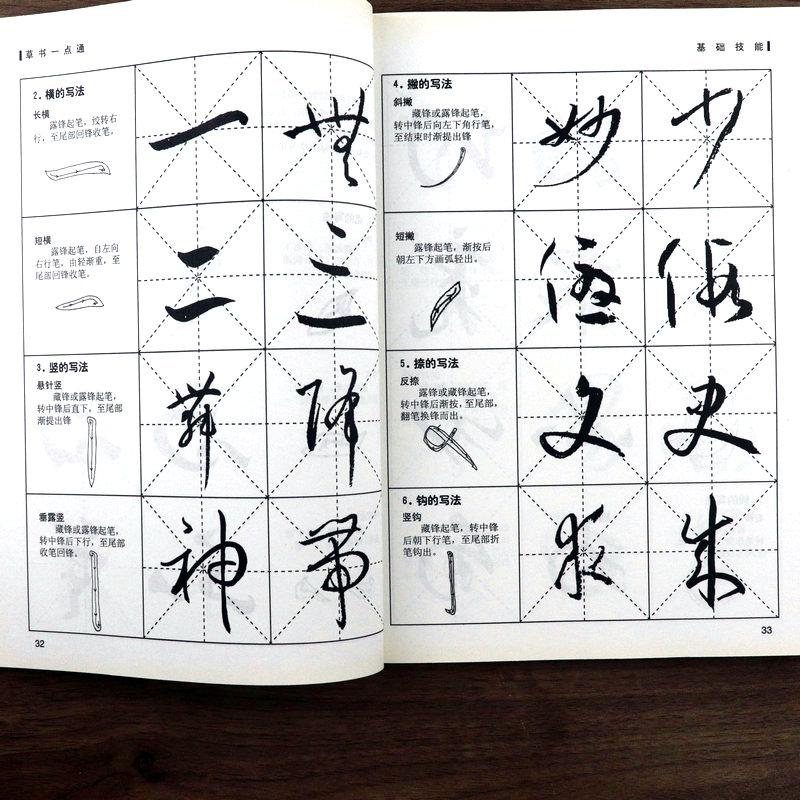 草书一点通
2. 横的写法
长横
露锋起笔，绞转右
行，至尾部回锋收笔，
一
無
短横
露锋起笔，自左向
右行笔，由轻渐重，至
尾部回锋收笔。
二
三
3. 竖的写法
悬针竖
藏锋或露锋起笔，
转中锋后直下，至尾部
渐提出锋
降
垂露竖
藏锋或露锋起笔，
转中锋后下行，至尾部
收笔回锋。
神
帶
32
基础技能
4. 撇的写法
斜撇
藏锋或露锋起笔，
转中锋后向左下角行笔，
至结束时渐提出锋
妙
少
短撇
露锋起笔，渐按后
朝左下方画弧轻出。
5. 捺的写法
反捺
露锋或藏锋起笔，
转中锋后渐按，至尾部，
翻笔换锋而出。
文
史
6. 钩的写法
竖钩
藏锋起笔，转中锋
后朝下行笔，至尾部折
笔钩出。
求
朱
33